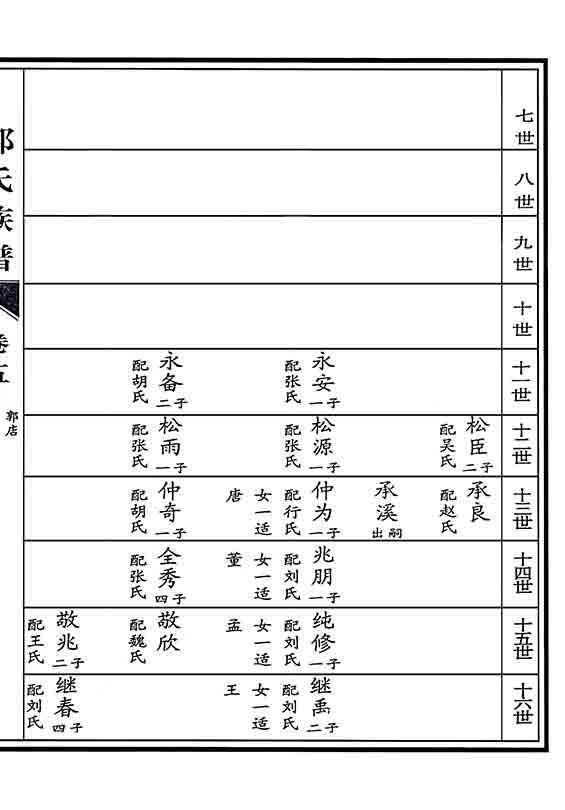 七世
八世
九世
十世
十一世
永安
一子
配张氏
永备
二子
配胡氏
十二世
松臣
二子
配吴氏
松源
一子
配张氏
松雨
一子
配张氏
十三世
承良
配赵氏
承溪
出嗣
仲为
一子
配行氏
女一适
唐
仲奇
一子
配胡氏
十四世
兆朋
一子
配刘氏
女一适
董
全秀
四子
配张氏
十五世
纯修
一子
配刘氏
女一适
孟
敬欣
配魏氏
敬兆
二子
配王氏
十六世
继禹
二子
配刘氏
女一适
王
继春
四子
配刘氏
氏族谱
卷五
郭店